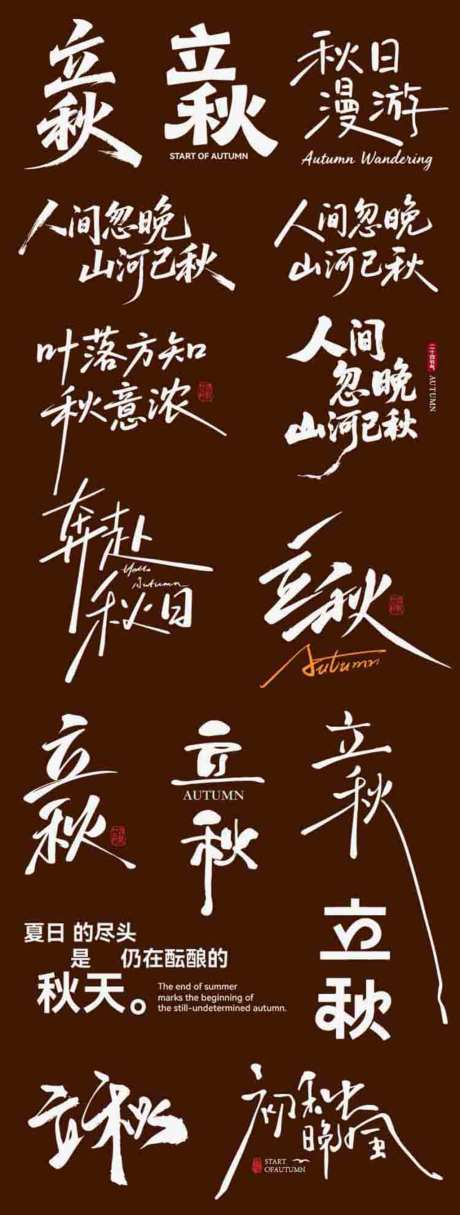 立
秋
立
秋
START OF AUTUMN
秋日
漫游
Autumn Wandering
人间忽晚
山河已秋
人间忽晚
山河已秋
叶落方知
秋意浓
人间
忽晚
山河已秋
二十四节气
AUTUMN
奔赴
Hello
Autumn
秋日
立秋
Autumn
立
秋
立
AUTUMN
秋
立
秋
夏日的尽头
是 仍在酝酿的
秋天。
The end of summer
marks the beginning of
the still-undetermined autumn.
立
秋
立秋
初秋
晚風
START
OFAUTUMN